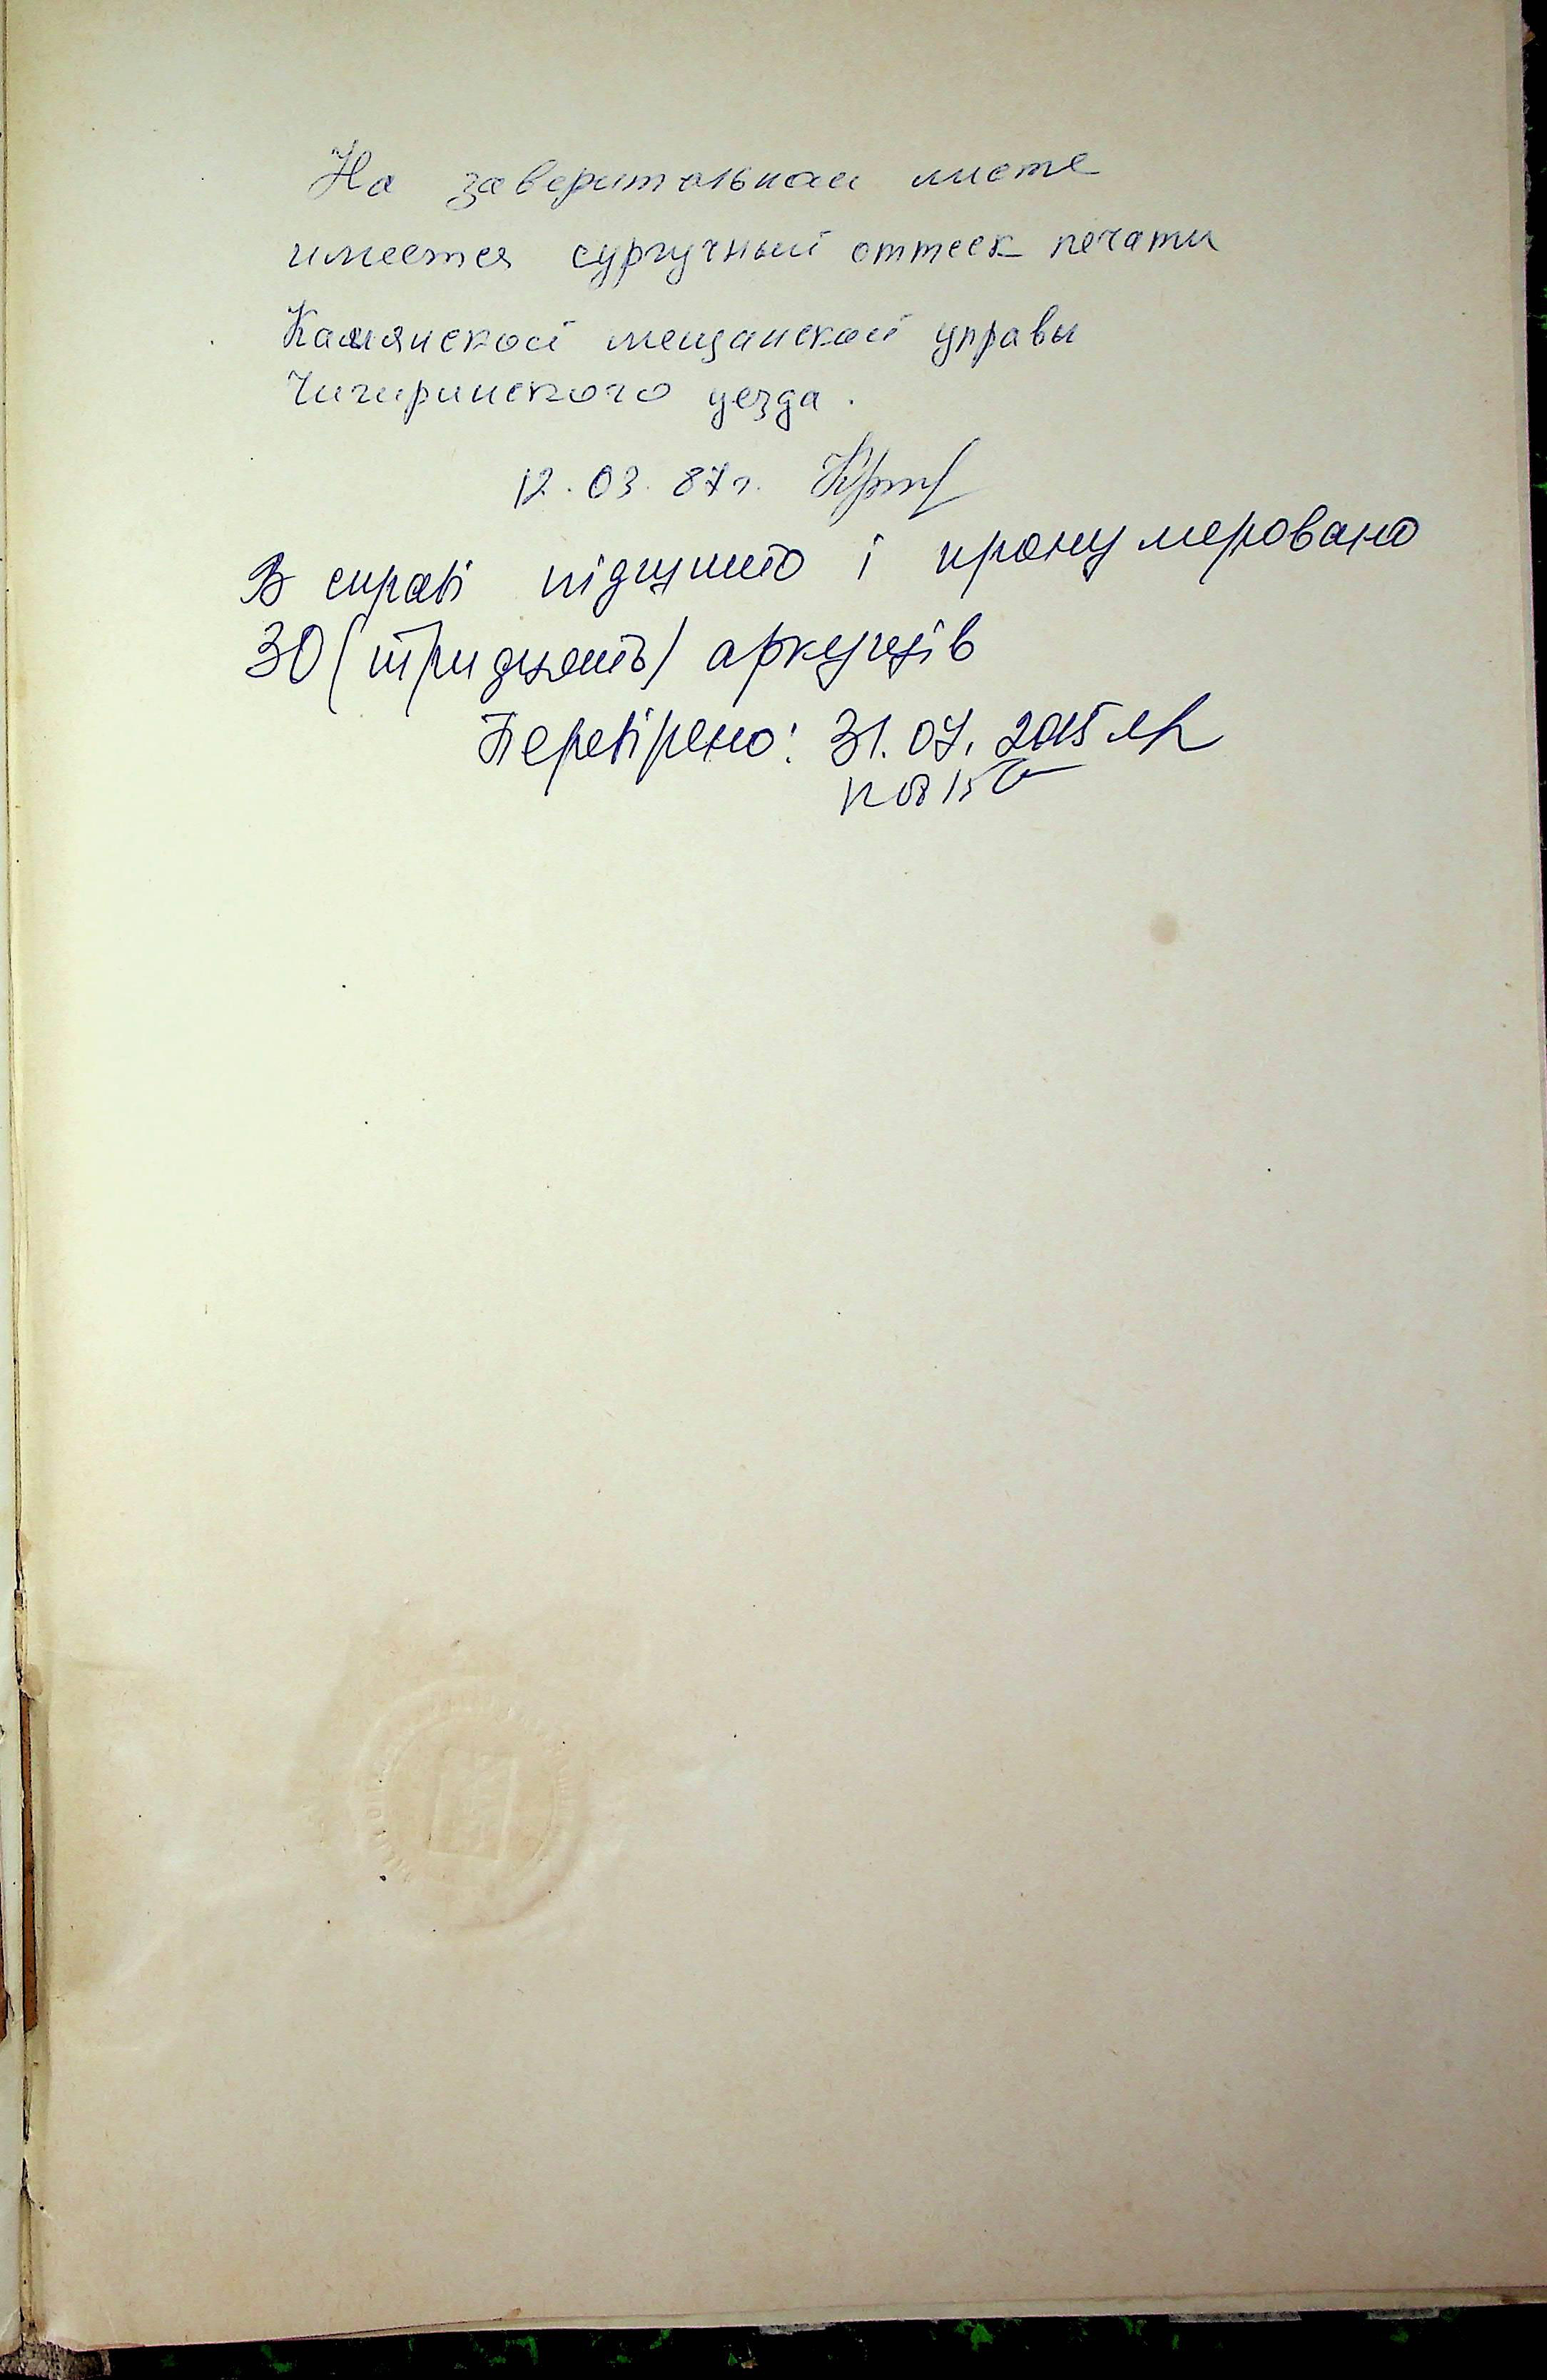 На заверительном листе
имеется сургучный оттиск печати
Камянской мещанской управы
Чигиринского уезда.
12.03.87г.
В справі підшито і пронумеровано
30 (тридцять) аркушів
Перевірено: 31.07.2015